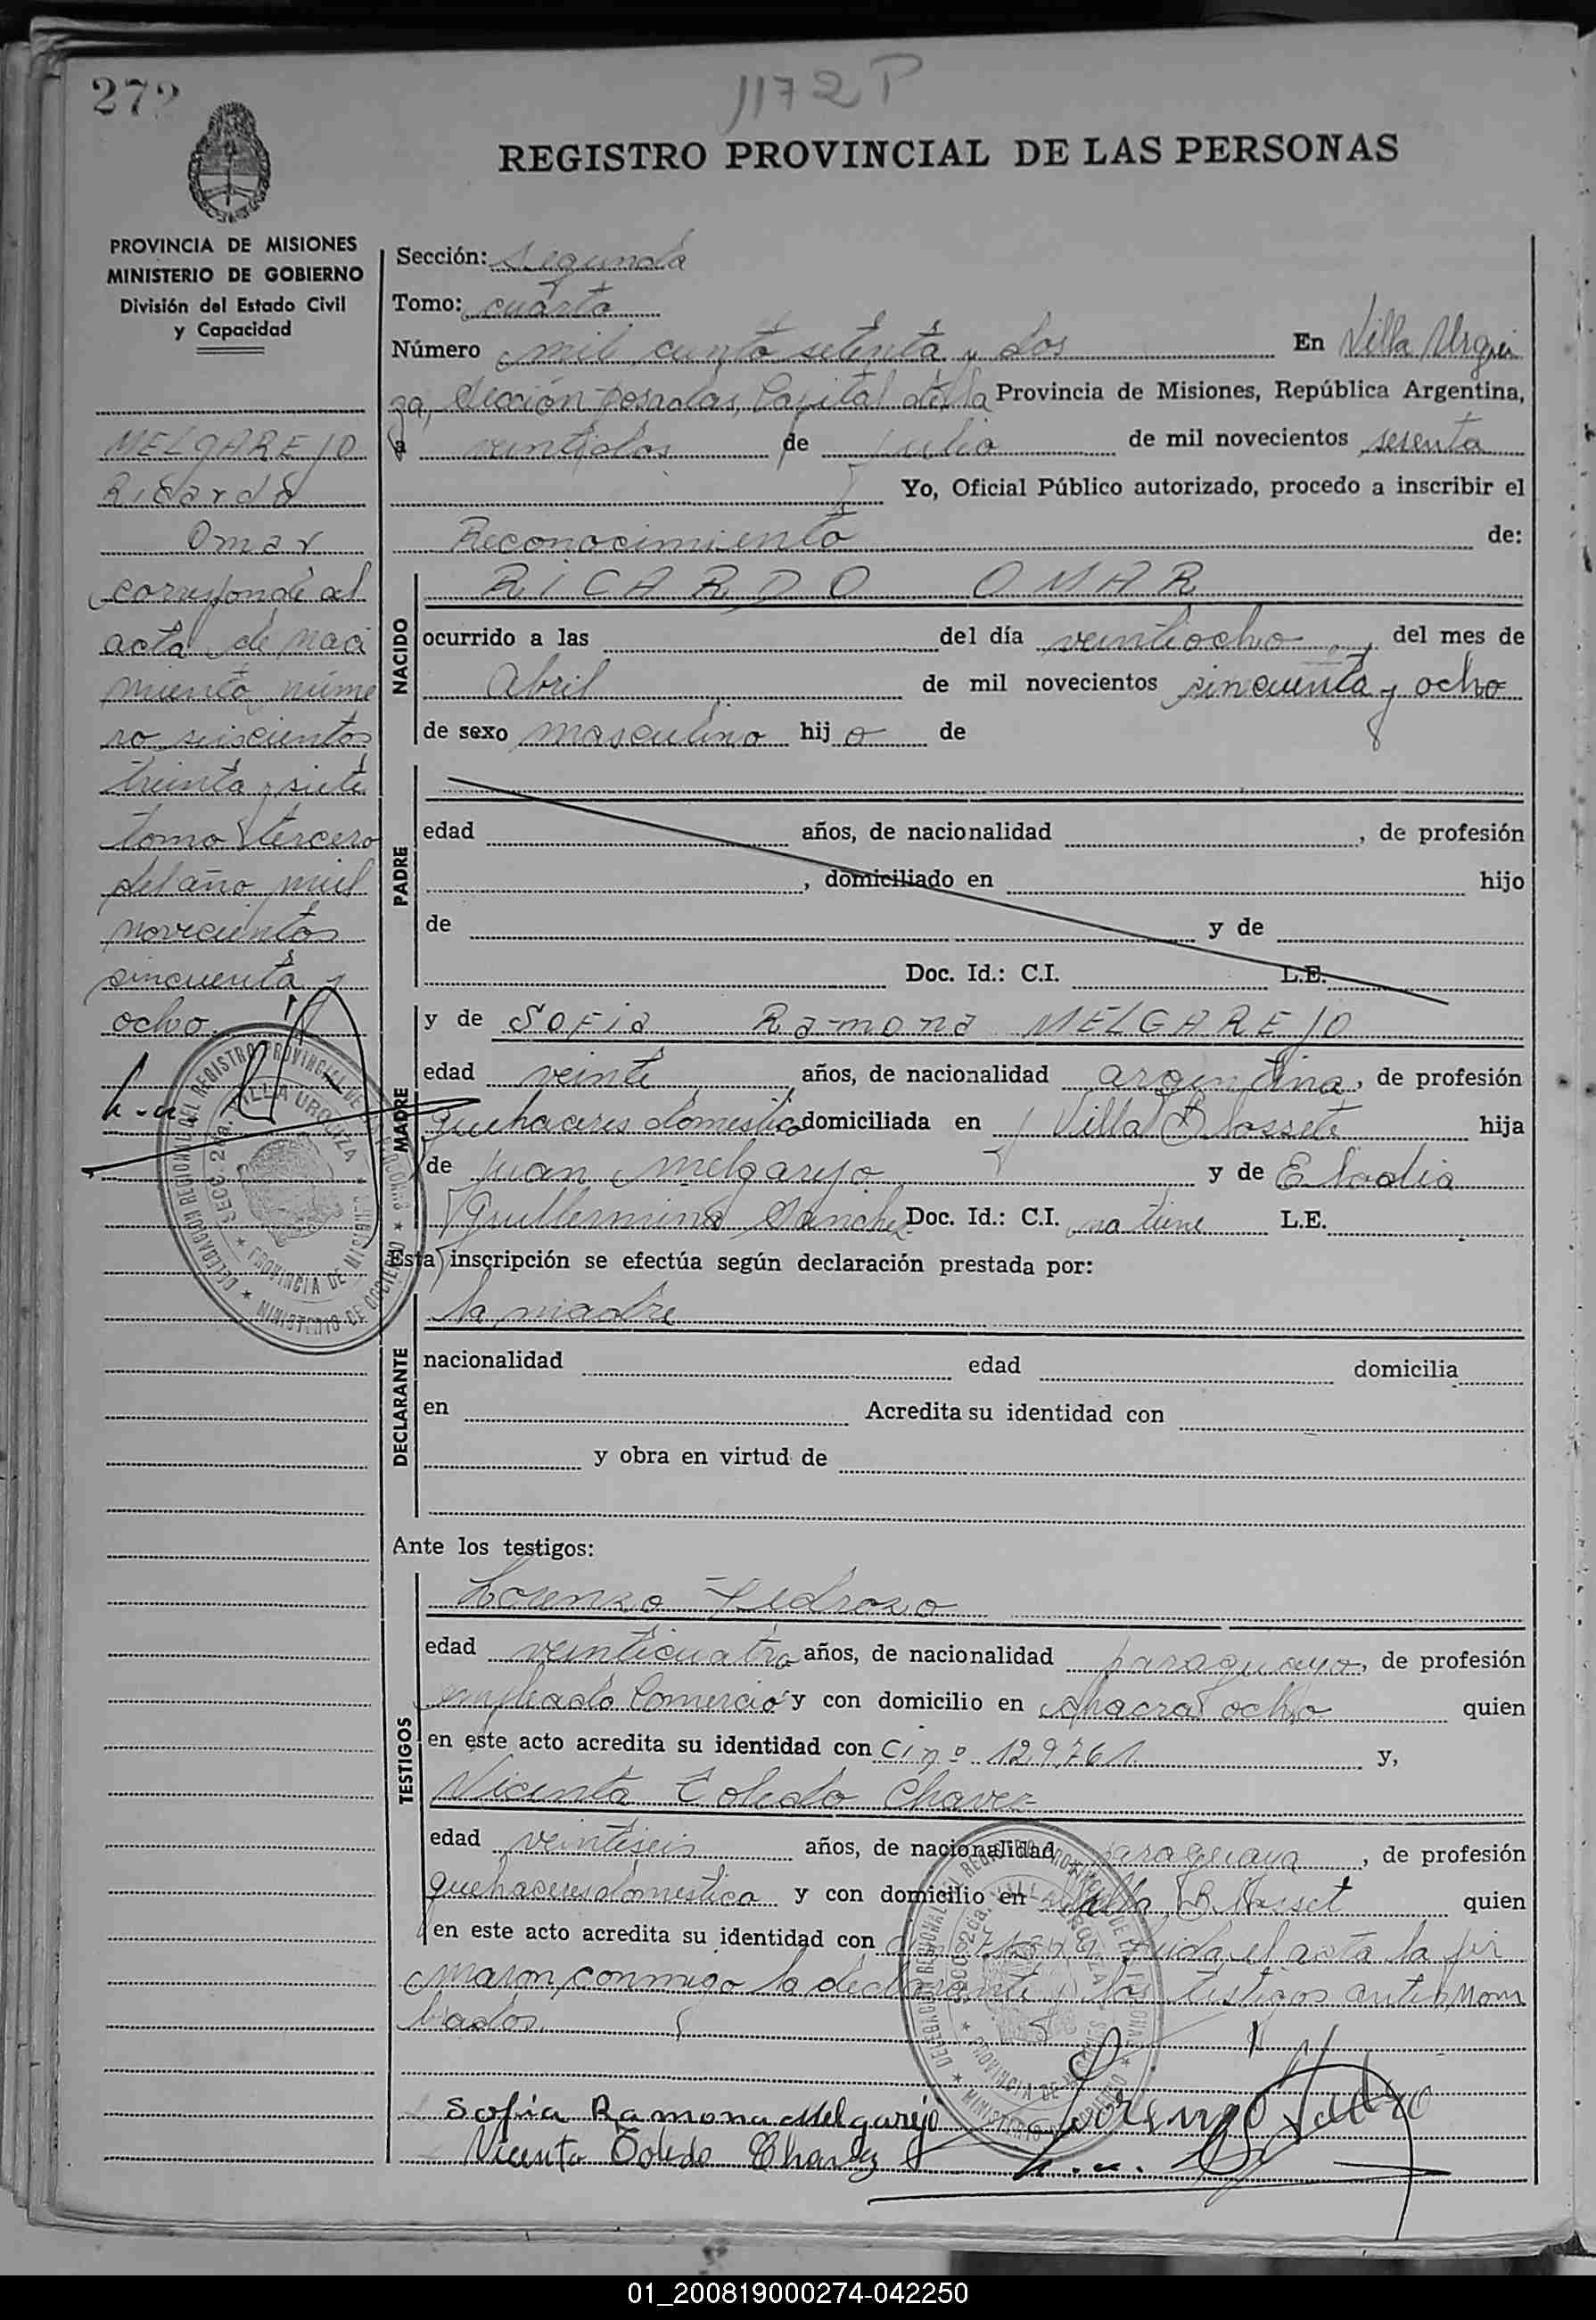 272
1172 P
REGISTRO PROVINCIAL DE LAS PERSONAS
PROVINCIA DE MISIONES
MINISTERIO DE GOBIERNO
División del Estado Civil
y Capacidad
MELGAREJO
Ricardo
Omar
corresponde al
acta de naci
miento núme
ro seiscientos
treinta y siete
tomo tercero
del año mil
novecientos
cincuenta y
ocho
Sección: Segunda
Tomo: cuarto
Número mil ciento setenta y dos En Villa Urqui
za, Sección Posadas, Capital de la Provincia de Misiones, República Argentina,
a veintidos de julio de mil novecientos sesenta
Yo, Oficial Público autorizado, procedo a inscribir el
Reconocimiento de:
NACIDO
RICARDO OMAR
ocurrido a las del día veintiocho del mes de
Abril de mil novecientos cincuenta y ocho
de sexo masculino hijo de
PADRE
edad años, de nacionalidad , de profesión
, domiciliado en hijo
de y de
Doc. Id.: C.I. L.E.
MADRE
y de Sofia Ramona MELGAREJO
edad veinte años, de nacionalidad argentina, de profesión
quehaceres domestico domiciliada en Villa B hija
de Juan Melgarejo y de Eladia
Guillermina Sanchez Doc. Id.: C.I. no tiene L.E.
Esta inscripción se efectúa según declaración prestada por:
DECLARANTE
la madre
nacionalidad edad domicilia
en Acredita su identidad con
y obra en virtud de
Ante los testigos:
TESTIGOS
Lorenzo Pedrozo
edad veinticuatro años, de nacionalidad paraguayo, de profesión
empleado Comercio y con domicilio en chacra ocho quien
en este acto acredita su identidad con Ci nº 129.761 y,
Vicenta Toledo Chavez
edad veintiseis años, de nacionalidad paraguaya, de profesión
quehaceres domestica y con domicilio en Villa B quien
en este acto acredita su identidad con leida el acta la fir
maron conmigo la declarante y los testigos antes nom
brados
Sofia Ramona Melgarejo
Vicenta Toledo Chavez
DELEGACION REGIONAL DEL REGISTRO PROVINCIAL DE LAS PERSONAS
SECC. 2da. VILLA URQUIZA
PROVINCIA DE MISIONES
MINISTERIO DE GOBIERNO
01_200819000274-042250